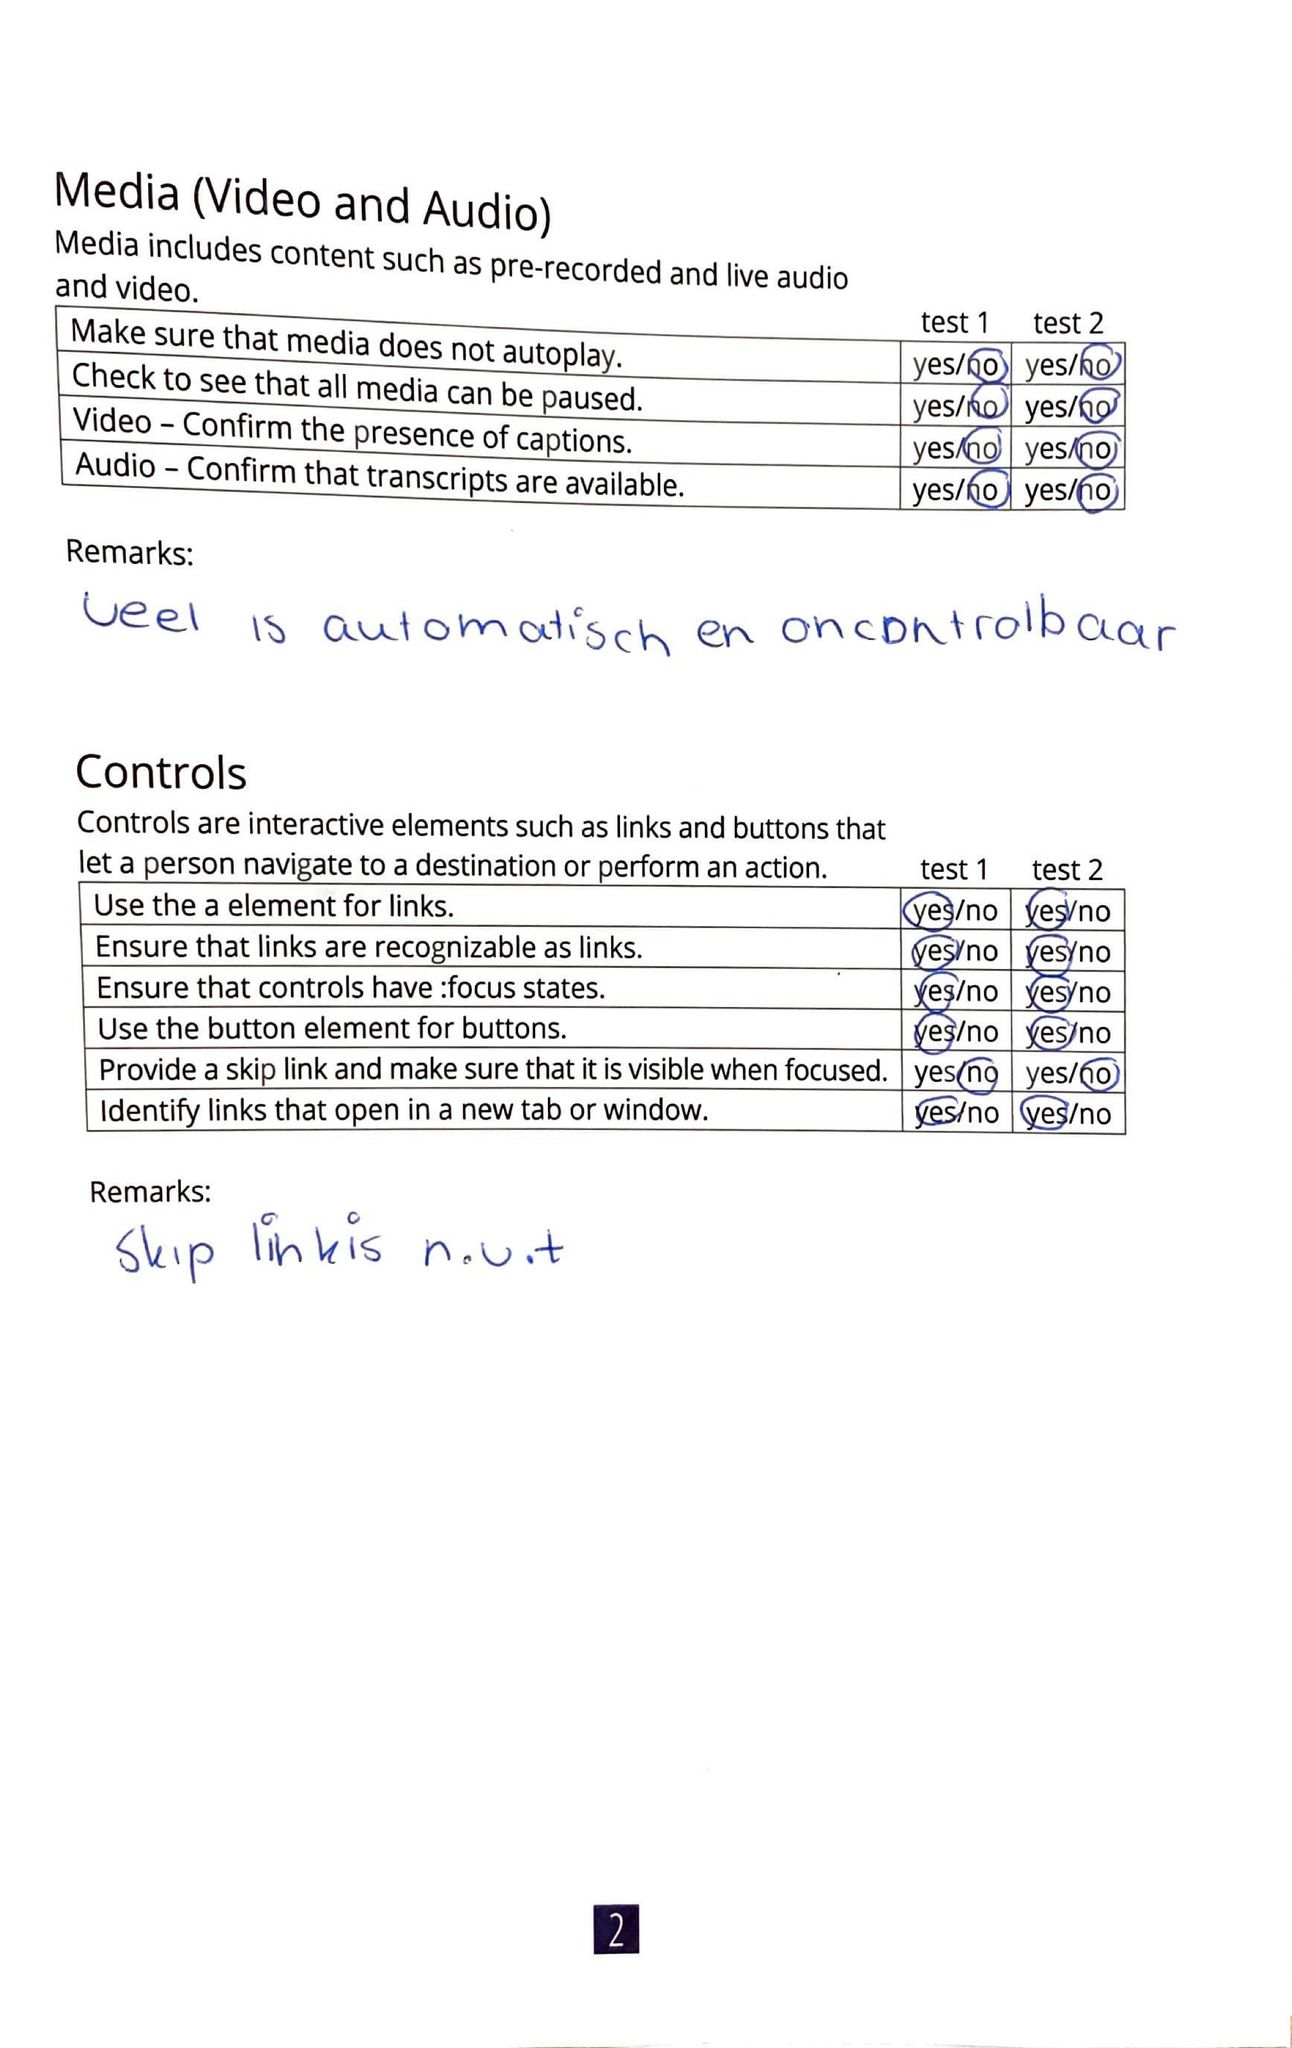 Media (Video and Audio)
Media includes content such as pre-recorded and live audio
and video.
test 1 test 2
Make sure that media does not autoplay. yes/no yes/no
Check to see that all media can be paused. yes/no yes/no
Video – Confirm the presence of captions. yes/no yes/no
Audio – Confirm that transcripts are available. yes/no yes/no
Remarks:
veel is automatisch en oncontrolbaar
Controls
Controls are interactive elements such as links and buttons that
let a person navigate to a destination or perform an action. test 1 test 2
Use the a element for links. yes/no yes/no
Ensure that links are recognizable as links. yes/no yes/no
Ensure that controls have :focus states. yes/no yes/no
Use the button element for buttons. yes/no yes/no
Provide a skip link and make sure that it is visible when focused. yes/no yes/no
Identify links that open in a new tab or window. yes/no yes/no
Remarks:
Skip link is n.v.t
2